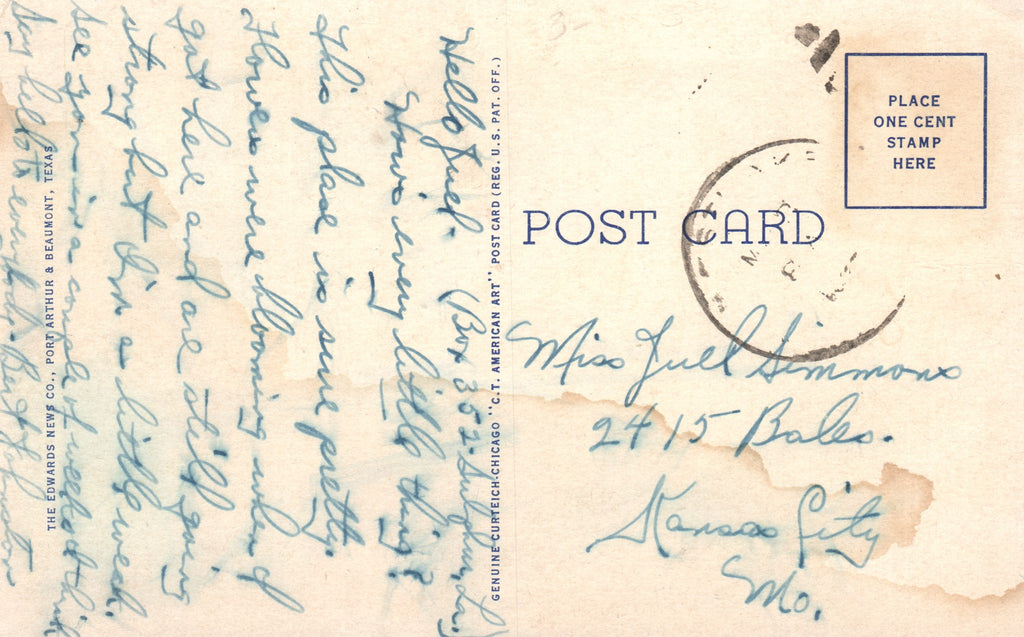 Hello Juel. (Box 352. Sulphur, La.)
How's every little thing?
This place is sure pretty.
Flowers were blooming when I
got here and are still going
strong but I'm a little weak.
see you in a couple of weeks I think
Say hello to everybody. Bert Johnston
THE EDWARDS NEWS CO., PORT ARTHUR & BEAUMONT, TEXAS
GENUINE CURTEICH-CHICAGO "C.T. AMERICAN ART" POST CARD (REG. U.S. PAT. OFF.)
POST CARD
PLACE
ONE CENT
STAMP
HERE
Miss Juell Simmons
2415 Bales.
Kansas City
Mo.